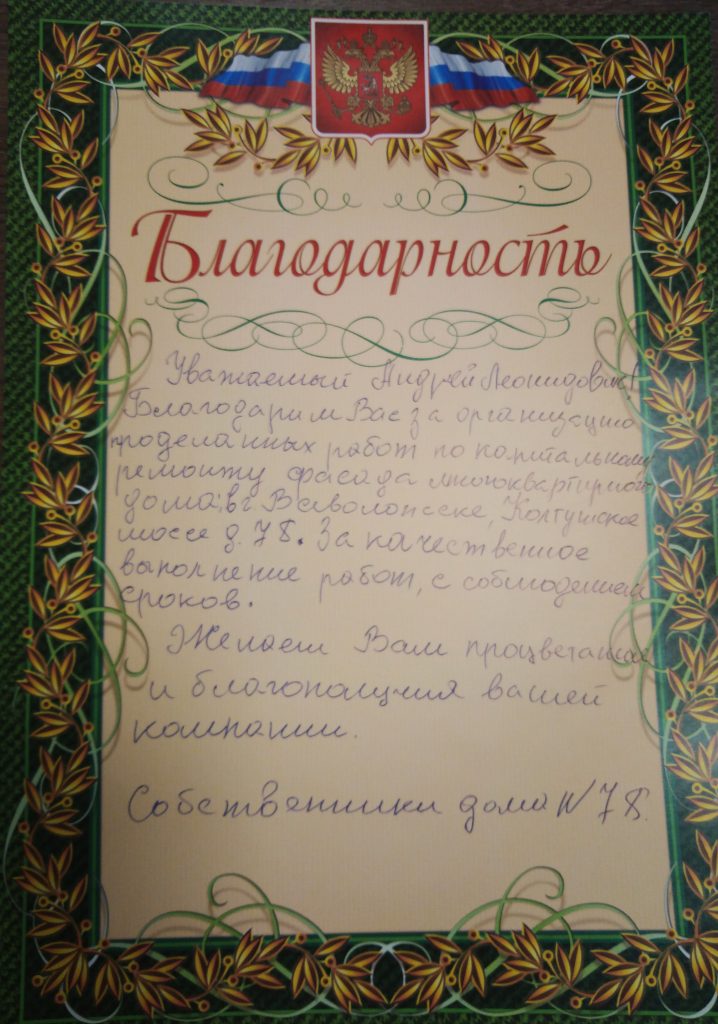 Благодарность
Уважаемый Андрей Леонидович!
Благодарим Вас за организацию
проделанных работ по капитальному
ремонту фасада многоквартирного
дома: в г Всеволожске, Колтушское
шоссе д. 78. За качественное
выполнение работ, с соблюдением
сроков.
Желаем Вам процветания
и благополучия вашей
компании.
Собственники дома N 78.